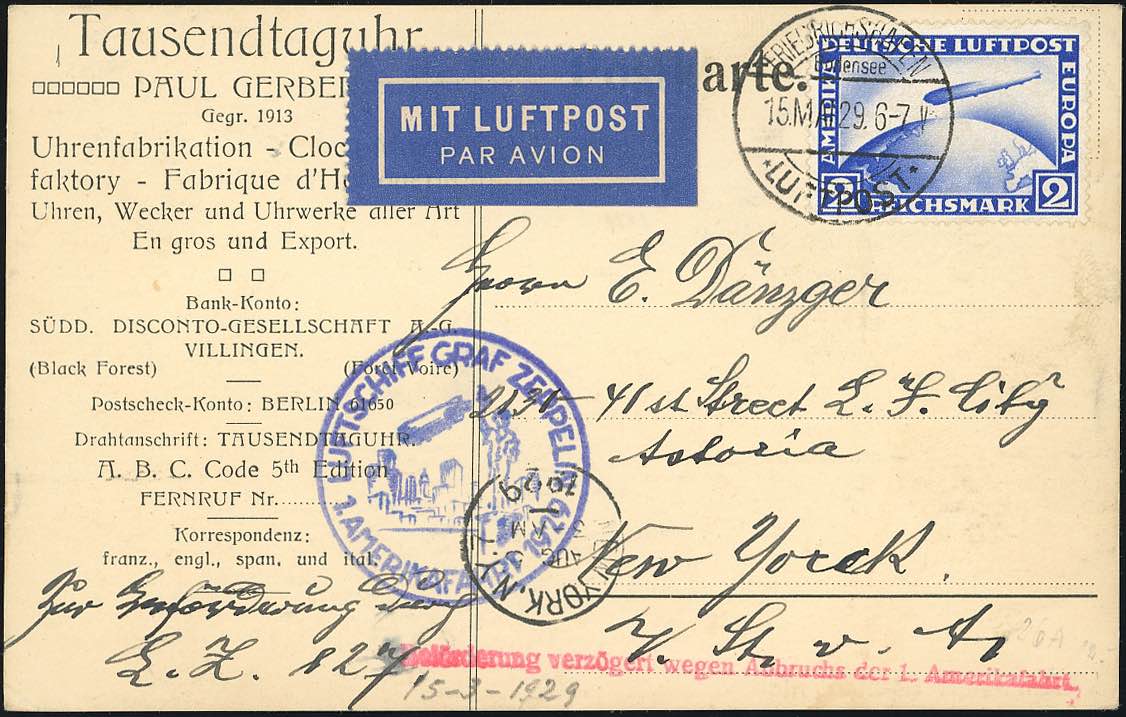 Tausendtaguhr
PAUL GERBE
Gegr. 1913
Uhrenfabrikation - Cloc
faktory - Fabrique d'Ho
Uhren, Wecker und Uhrwerke aller Art
En gros und Export.
Bank-Konto:
SÜDD. DISCONTO-GESELLSCHAFT A.-G.
VILLINGEN.
(Black Forest) (Foret Voire)
Postscheck-Konto: BERLIN 61650
Drahtanschrift: TAUSENDTAGUHR.
A. B. C. Code 5th Edition
FERNRUF Nr.
Korrespondenz:
franz., engl., span. und ital.
Zur Beförderung durch
L. Z. 127
15-3-1929
MIT LUFTPOST
PAR AVION
arte.
FRIEDRICHSHAFEN
Bodensee
15.MAI 29. 6-7 V
LUFTPOST
DEUTSCHE LUFTPOST
AMERIKA
EUROPA
2 REICHSMARK 2
Herrn E. Dänzger
41 st Street L. I. City
Astoria
New Yorck.
U. St. v. A.
LUFTSCHIFF GRAF ZEPPELIN
1. AMERIKAFAHRT 1929
NEW YORK, N.Y.
AUG
AM
1929
Beförderung verzögert wegen Abbruchs der 1. Amerikafahrt.